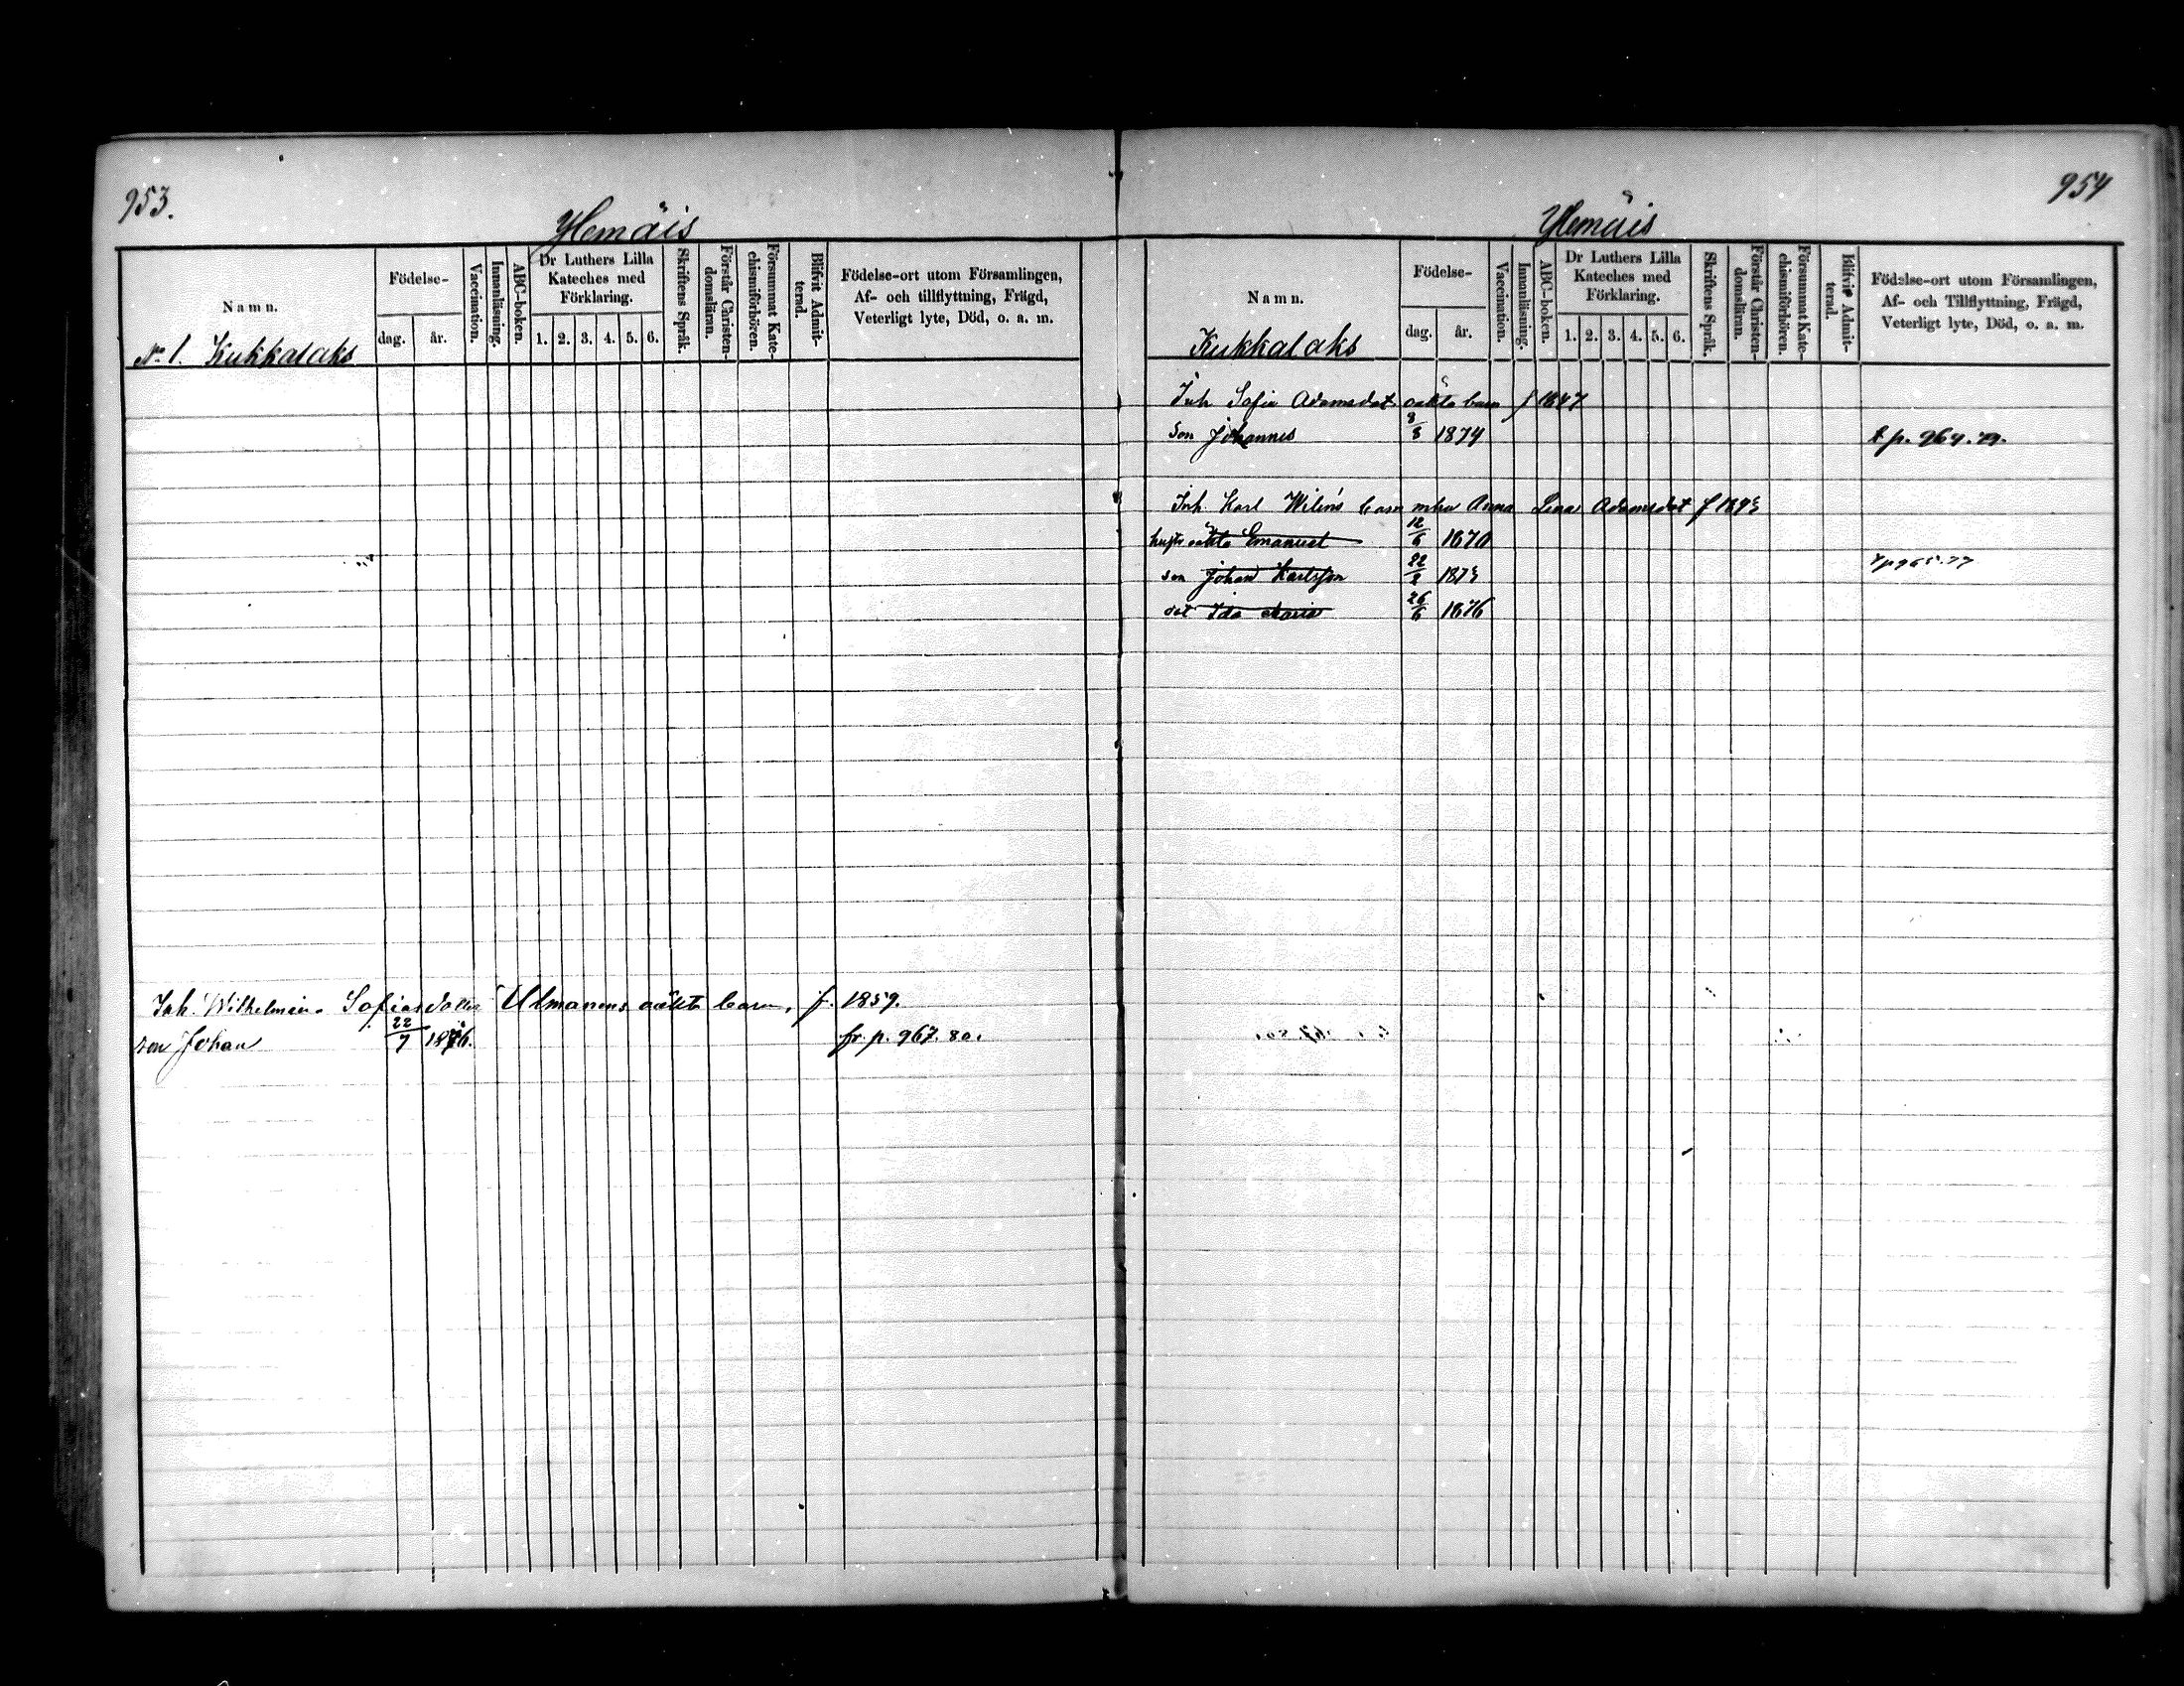 953.
Ylemäis
Namn.
Födelse-
dag. år.
Vaccination.
Innanläsning.
ABC-boken.
Dr Luthers Lilla
Kateches med
Förklaring.
1. 2. 3. 4. 5. 6.
Skriftens Språk.
Förstår Christen-
domsläran.
Försummat Kate-
chismiförhören.
Blifvit Admit-
terad.
Födelse-ort utom Församlingen,
Af- och tillflyttning, Frägd,
Veterligt lyte, Död, o. a. m.
No 1. Kukkalaks
Inh. Wilhelmina Sofias Ulmanens oäkta barn, f. 1859.
son Johan 22/7 1876. fr. p. 967. 80.
954
Ylemäis
Namn.
Kukkalaks
Födelse-
dag. år.
Vaccination.
Innanläsning.
ABC-boken.
Dr Luthers Lilla
Kateches med
Förklaring.
1. 2. 3. 4. 5. 6.
Skriftens Språk.
Förstår Christen-
domsläran.
Försummat Kate-
chismiförhören.
Blifvit Admit-
terad.
Födelse-ort utom Församlingen,
Af- och Tillflyttning, Frägd,
Veterligt lyte, Död, o. a. m.
Inh Sofia Adamsdot. oäkta barn f 1847
son Johannes 1874 t p. 964. 79.
Inh. Karl Wilens barn Anna Lena Adamsdot f
oäkta Emanuel 12/6 1870
son Johan Karlsson 22/2 1873 t p 965. 77
dot Ida Maria 26/6 1876